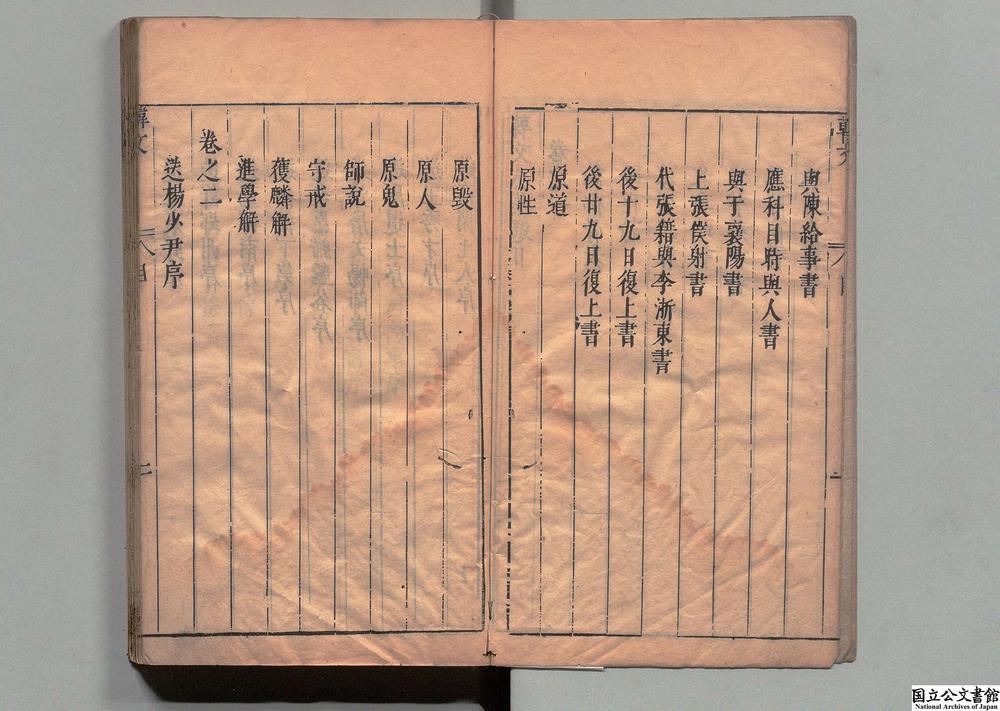 與陳給事書
應科目時與人書
與于襄陽書
上張僕射書
代張籍與李浙東書
後十九日復上書
後廿九日復上書
原道
原性
原毀
原人
原鬼
師說
守戒
獲麟解
進學解
卷之二
送楊少尹序
韓文
目
二
国立公文書館
National Archives of Japan